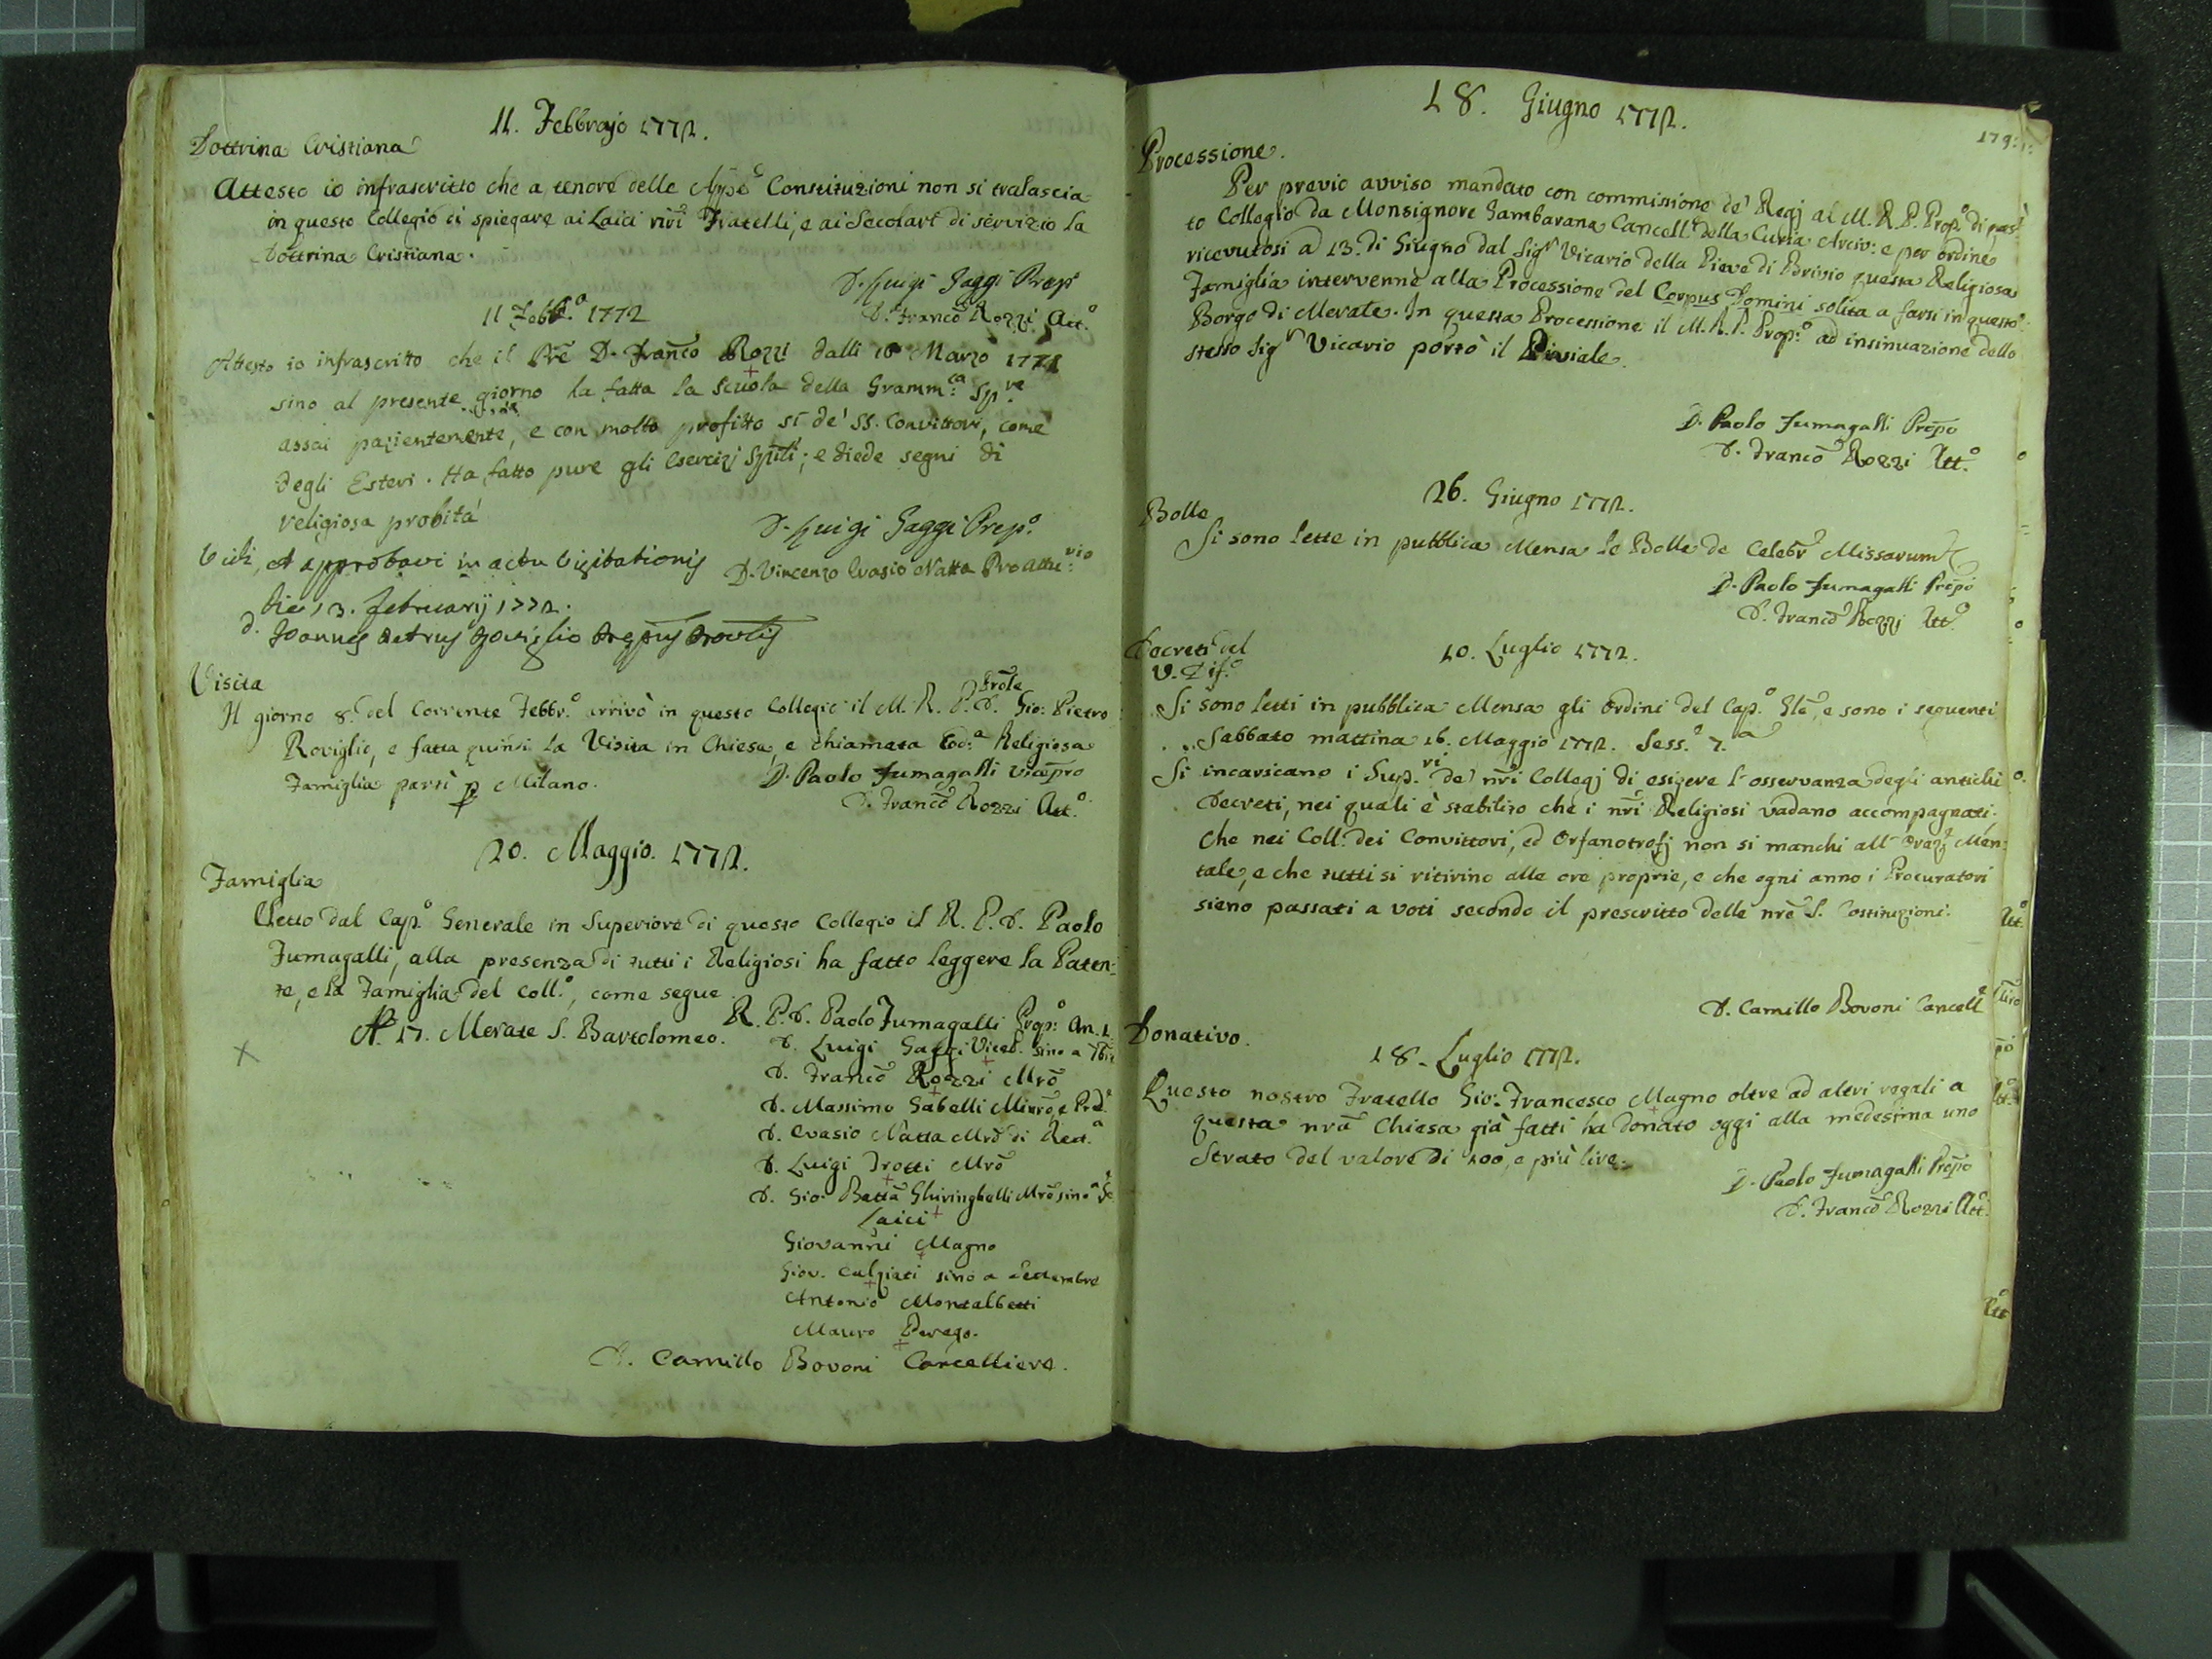 11. Febbrajo 1772.
Dottrina Cristiana
Attesto io infrascritto che a tenore delle Constituzioni non si tralascia
in questo Collegio di spiegare ai Laici nri Fratelli, e ai Secolari di servizio la
Dottrina Cristiana.
D. Luigi Gaggi Prep.
D. Franco Rozzi Att.o
11 Febb.o 1772
Attesto io infrascritto che il Pre D. Franco Rozzi dalli 16 Marzo 1771
sino al presente giorno ha fatta la scuola della Gramm.ca Sp.re
assai pazientemente, e con molto profitto sì de' SS. Convittori, come
degli Esteri. Ha fatto pure gli Esercizj Spūli; e diede segni di
religiosa probità
D. Luigi Gaggi Prep.o
D. Vincenzo Evasio Natta Pro Attu.rio
Vidi, et approbavi in actu Visitationis
die 13. februarij 1772.
D. Joannes Petrus Roviglio Prepus Provlis
Visita
Il giorno 8. del Corrente Febbr.o arrivò in questo Collegio il M. R. P. Prole D. Gio: Pietro
Roviglio, e fatta quindi la Visita in Chiesa, e chiamata Cod.a Religiosa
Famiglia partì p Milano.
D. Paolo Fumagalli Vicepro
D. Franco Rozzi Att.o
20. Maggio. 1772.
Famiglia
Eletto dal Cap.o Generale in Superiore di questo Collegio il R. P. D. Paolo
Fumagalli, alla presenza di tutti i Religiosi ha fatto leggere la Paten:
te, e la Famiglia del Coll.o, come segue
N. 17. Merate S. Bartolomeo.
R. P. D. Paolo Fumagalli Prop.o An. 1.
D. Luigi Gaggi Vicep. sino a 7bre
D. Franco Rozzi Mro
D. Massimo Gabelli Minro, e Pred.
D. Evasio Natta Mro di Ret.a
D. Luigi Trotti Mro
D. Gio: Batta Ghiringhelli Mro sino a
Laici
Giovanni Magno
Giov. Calziati sino a Settembre
Antonio Montalbetti
Mauro Perego.
D. Camillo Bovoni Cancelliere.
18. Giugno 1772.
179
Processione.
Per previo avviso mandato con commissione de' Regj al M. R. P. Prop.o di ques:
to Collegio da Monsignore Gambarana Cancell.e della Curia Arciv: e per ordine
ricevutosi a 13. di Giugno dal Sig.r Vicario della Pieve di Brivio questa Religiosa
Famiglia intervenne alla Processione del Corpus Domini solita a farsi in questo
Borgo di Merate. In questa Processione il M. R. P. Prop.o ad insinuazione dello
stesso Sig.r Vicario portò il Piviale.
D. Paolo Fumagalli Prepo
D. Franco Rozzi Att.o
26. Giugno 1772.
Bolle
Si sono lette in pubblica Mensa le Bolle de Celebr Missarum
D. Paolo Fumagalli Prepo
D. Franco Rozzi Att.o
Decreti del
V. Dif.o
10. Luglio 1772.
Si sono letti in pubblica Mensa gli Ordini del Cap.o Gle, e sono i seguenti
Sabbato mattina 16. Maggio 1772. Sess.e 7.a
Si incaricano i Sup.ri de' nri Collegj di esigere l'osservanza degli antichi
Decreti, nei quali è stabilito che i nri Religiosi vadano accompagnati.
Che nei Coll. dei Convittori, ed Orfanotrofj non si manchi all'Oraz.e Men:
tale, e che tutti si ritirino alle ore proprie, e che ogni anno i Procuratori
sieno passati a voti secondo il prescritto delle nre S. Costituzioni.
D. Camillo Bovoni Cancell.e
Donativo.
18. Luglio 1772.
Questo nostro Fratello Gio: Francesco Magno oltre ad altri regali a
questa nra Chiesa già fatti ha donato oggi alla medesima uno
Strato del valore di 200, e più lire.
D. Paolo Fumagalli Prepo
D. Franco Rozzi Att.o